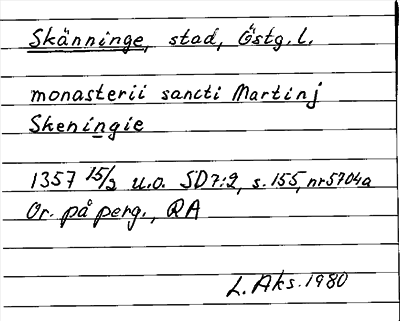 Skänninge, stad, Östg. l.
monasterii sancti Martinj
Skeningie
1357 15/2 u.o. SD7:2, s. 155, nr5704a
Or. på perg., RA
L. Aks. 1980